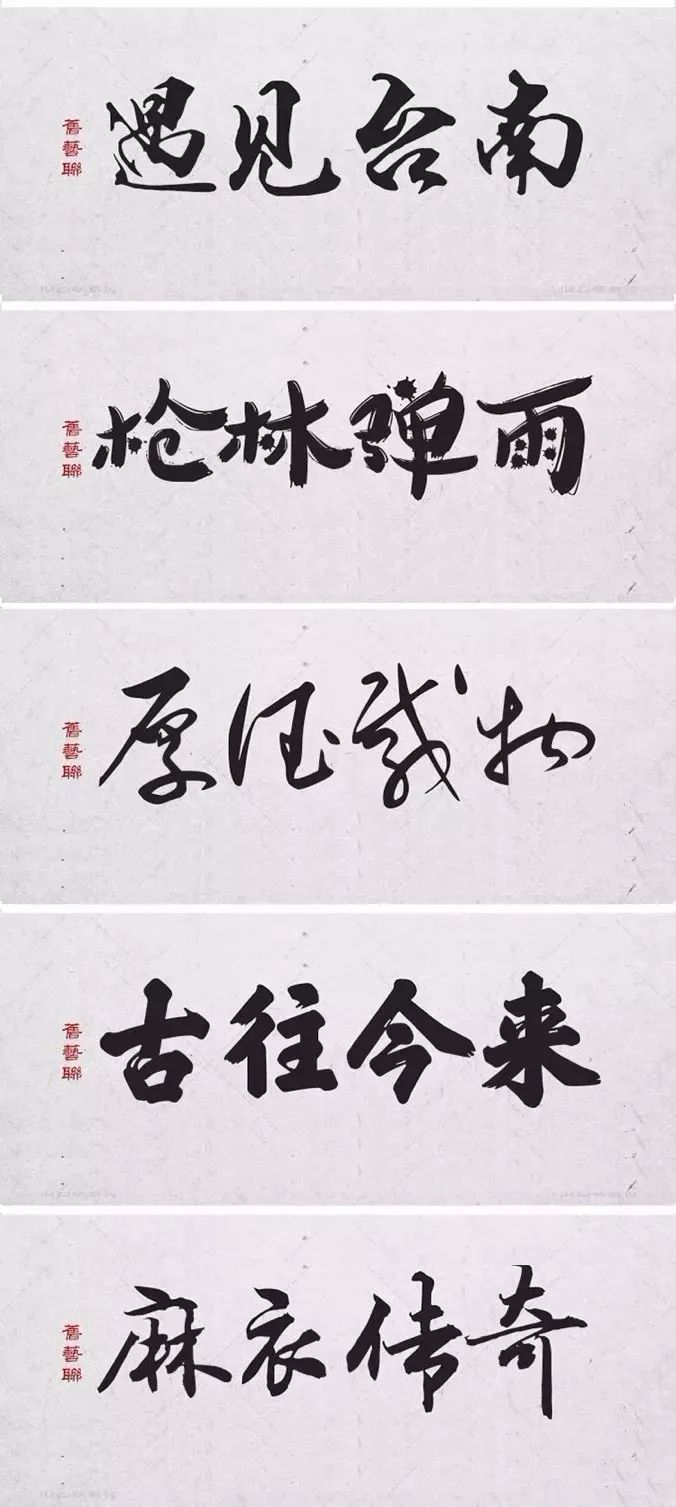 遇见台南
舊藝聯
枪林弹雨
舊藝聯
厚德载物
舊藝聯
古往今来
舊藝聯
麻衣传奇
舊藝聯